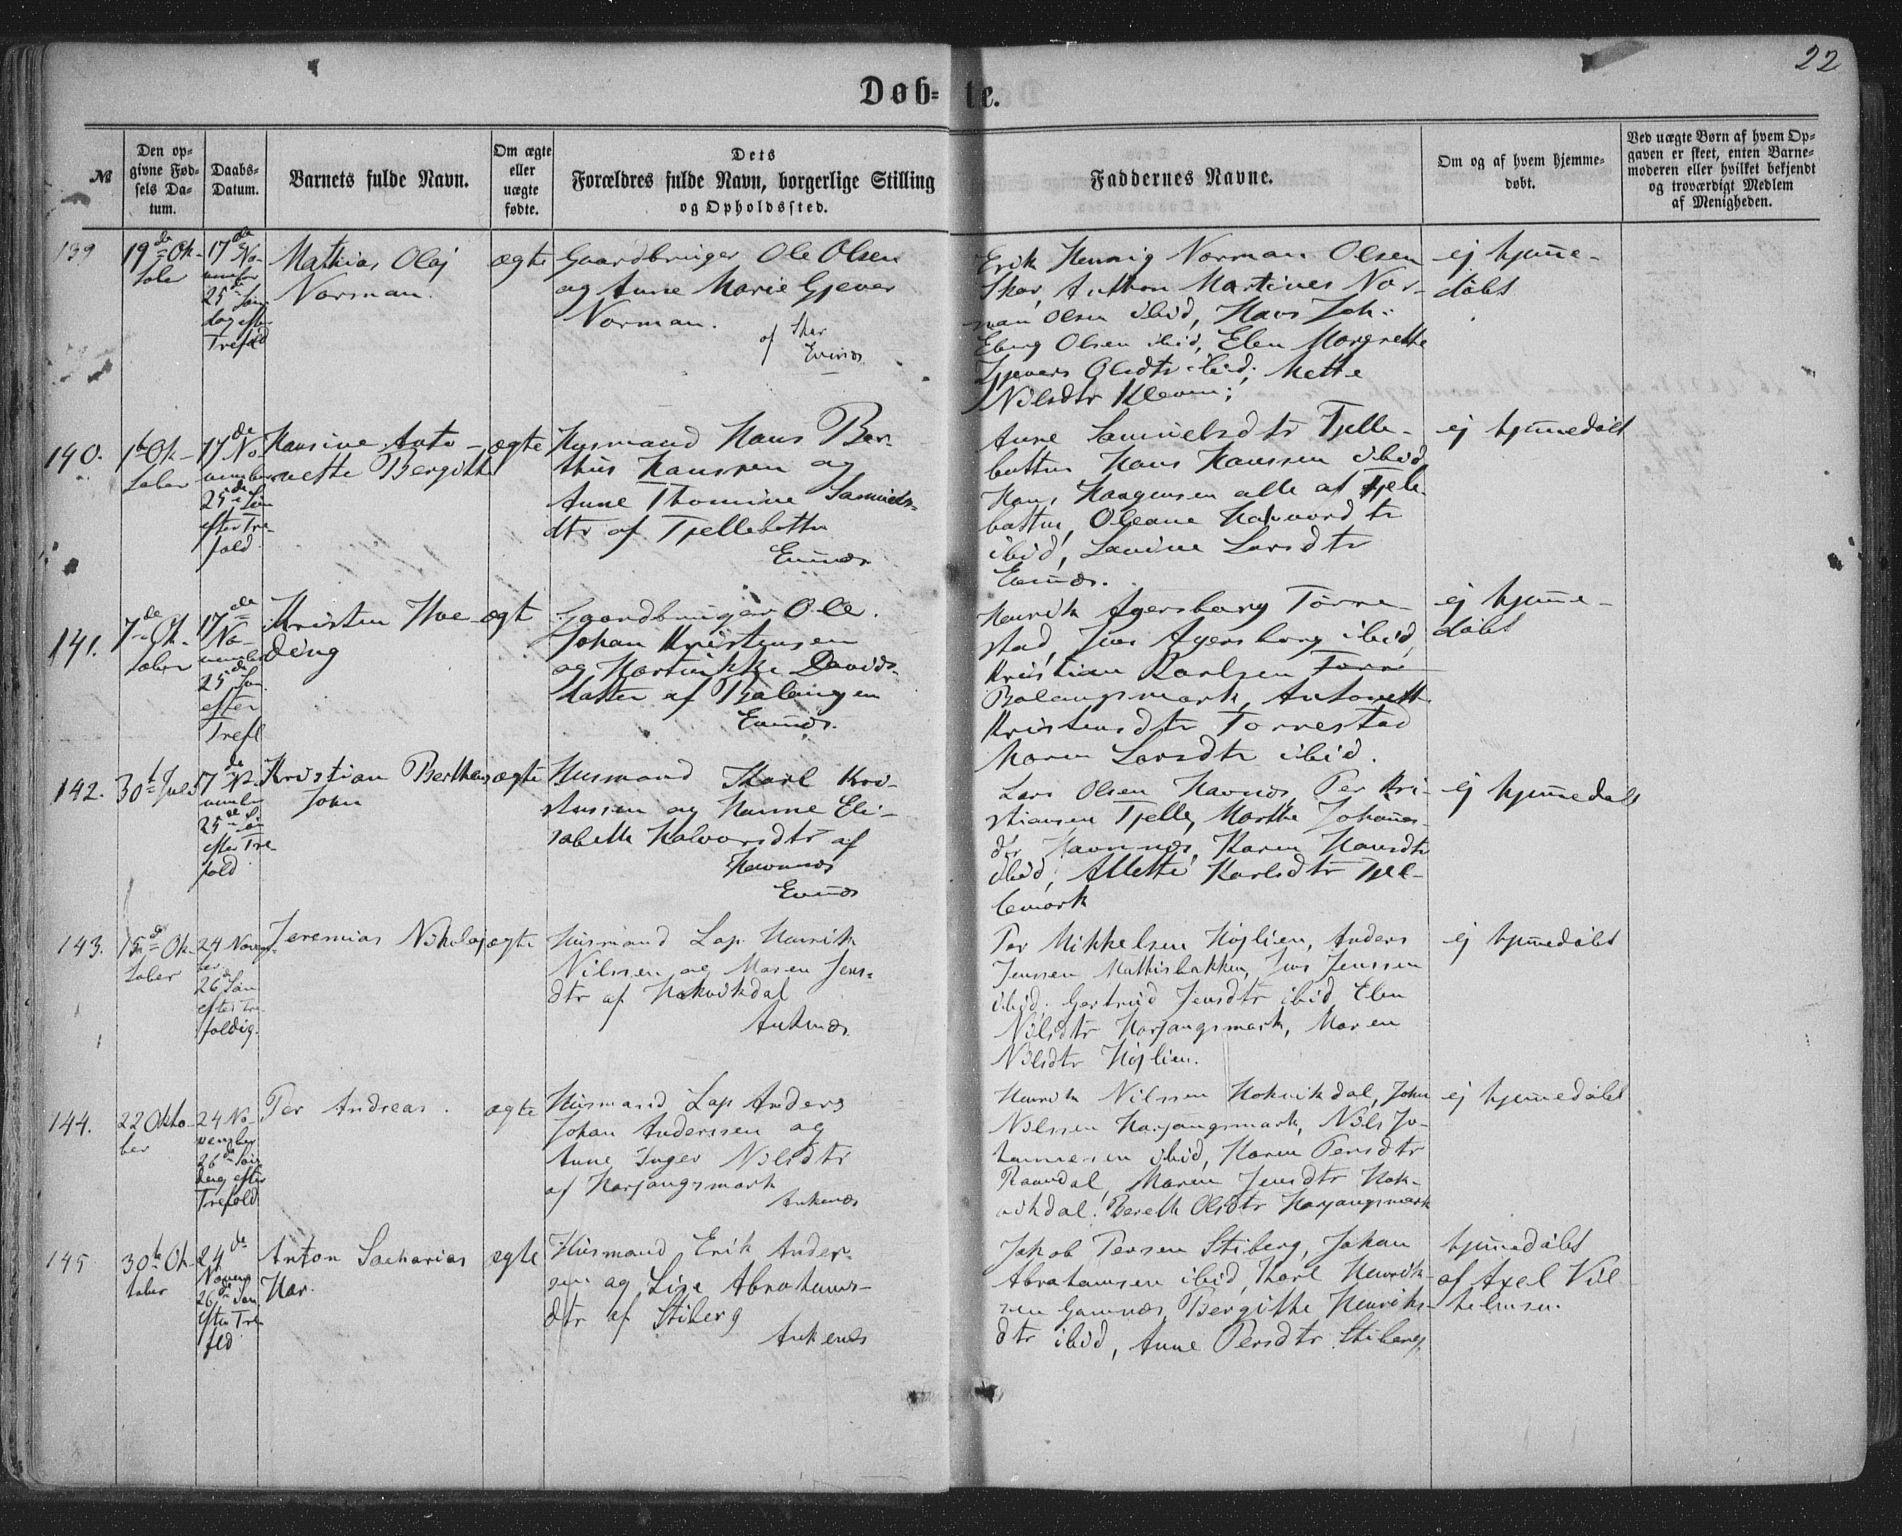 22
Døb= te.
№
Den op-
givne Fød-
sels Da-
tum.
Daabs-
Datum.
Barnets fulde Navn.
Om ægte
eller
uægte
fødte.
Dets
Forældres fulde Navn, borgerlige Stilling
og Opholdssted.
Faddernes Navne.
Om og af hvem hjemme-
døbt.
Ved uægte Børn af hvem Op-
gaven er skeet, enten Barne-
moderen eller hvilket bekjendt
og troværdigt Medlem
af Menigheden.
139
19de Ok-
tober
17de No-
vember
25de Søn
dag efter
Trefold
Mathias Olaj
Norman.
ægte
Gaardbruger Ole Olsen
og Anne Marie Gjever
Norman.
af Skar
Evenæs
Erik Hennig Norman Olsen
Skar, Anthon Martines Nor-
man Olsen ibid, Hans Joh.
Eberg Olsen ibid, Elen Margrethe
Gjevers Olsdtr ibid, Mette
Nilsdtr Kleven;
ej hjem̄e-
døbt
140.
1te Ok-
tober
17de No
vember
25de Søn
efter Tre
fold
Hansine Anto-
nette Bergitte
ægte
Husmand Hans Ber-
thus Hanssen og
Anne Thomine Samuels-
dtr af Tjellebotten
Evenæs
Anne Samuelsdtr Tjelle-
botten Hans Hanssen ibid,
Hans Haagensen alle af Tjele-
botten, Oleane Halvordtr
ibid, Lavine Larsdtr
Evenæs.
ej hjem̄edøbt
141.
7de Ok-
tober
17de
No-
vember
25de Søn
efter
Trefl
Kristen Hve-
ding
ægt
Gaardbruger Ole
Johan Kristensen
og Martinikke Davids-
datter af Balangen
Evenæs.
Henrik Agersborg Tørre-
stad, Jens Agersborg ibid,
Kristian Karlsen Tørre
Balangsmark, Antonette
Kristensdtr Tørrestad
Maren Larsdtr ibid.
ej hjem̄e-
døbt
142.
30te Juli
17de No-
vember
25de Søn
efter Tre
fold
Kristian Bertheus
John
ægte
Husmand Karl Kri-
stensen og Hanne Eli-
sabeth Halvorsdtr af
Havnnæs
Evenæs
Lars Olsen Havnæs, Per Kri-
stiansen Tjelle, Marthe Johan̄es-
dtr Havnnæs, Karen Hansdtr
ibid, Alette Karlsdtr Tjel-
lemark
ej hjem̄edøbt
143.
15de Ok-
tober
24 Novem-
ber
26de Søn
efter Tre
foldig.
Jeremias Nikolaj
ægte
Husmand Lap Henrik
Nilssen og Maren Jens-
dtr af Hakvikdal
Ankenæs
Per Mikkelsen Højlien, Anders
Jenssen Mathisbakken, Jens Jenssen
ibid, Gertrud Jensdtr ibid, Elen
Nilsdtr Harjangsmark, Maren
Nilsdtr Højlien.
ej hjem̄edøbt
144.
22 Okto-
ber
24 No-
vember
26de Søn
dag efter
Trefold
Per Andreas.
ægte
Husmand Lap Anders
Johan Anderssen og
Anne Inger Nilsdtr
af Harjangsmark
Ankenæs
Henrik Nilssen Hakvikdal, John
Nilssen Harjangsmark, Nils Jo-
hannesen ibid, Karen Persdtr
Raandal, Maren Jensdtr Hak-
vikdal, Bereth Olsdtr Harjangsmark
ej hjem̄edøbt
145
30te Ok-
tober
24de
Novem
26de Søn
efter Tre
fld
Anton Sacharias
Har.
ægte
Husmand Erik Ander-
sen og Lise Abrahams-
dtr af Stiberg
Ankenes
Jakob Persen Stiberg, Johan
Abrahamsen ibid, Karl Henrik-
sen Gamnæs, Bergithe Henriks-
dtr ibid, Anne Persdtr Stiberg,
hjem̄edøbt
af Axel Vil
helmsen.